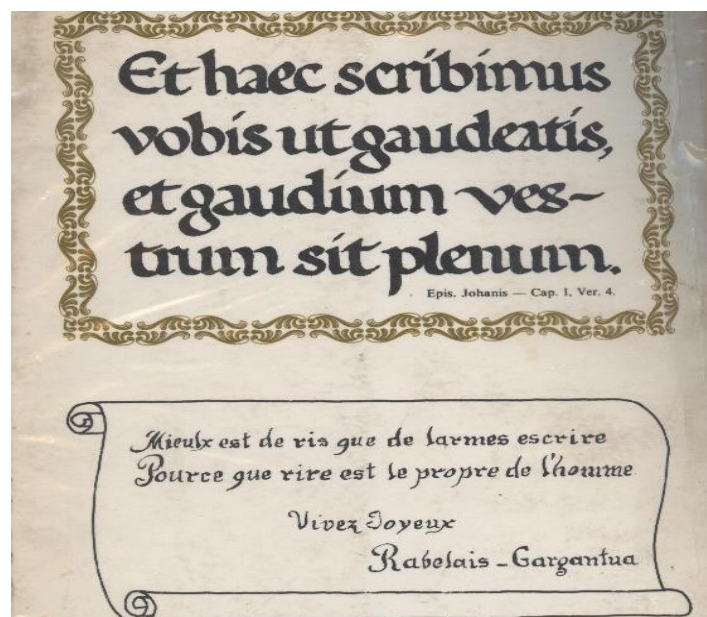 Et haec scribimus
vobis ut gaudeatis,
et gaudium ves~
trum sit plenum.
Epis. Johanis — Cap. I, Ver. 4.
Mieulx est de ris que de larmes escrire
Pource que rire est le propre de l'homme
Vivez Joyeux
Rabelais - Gargantua